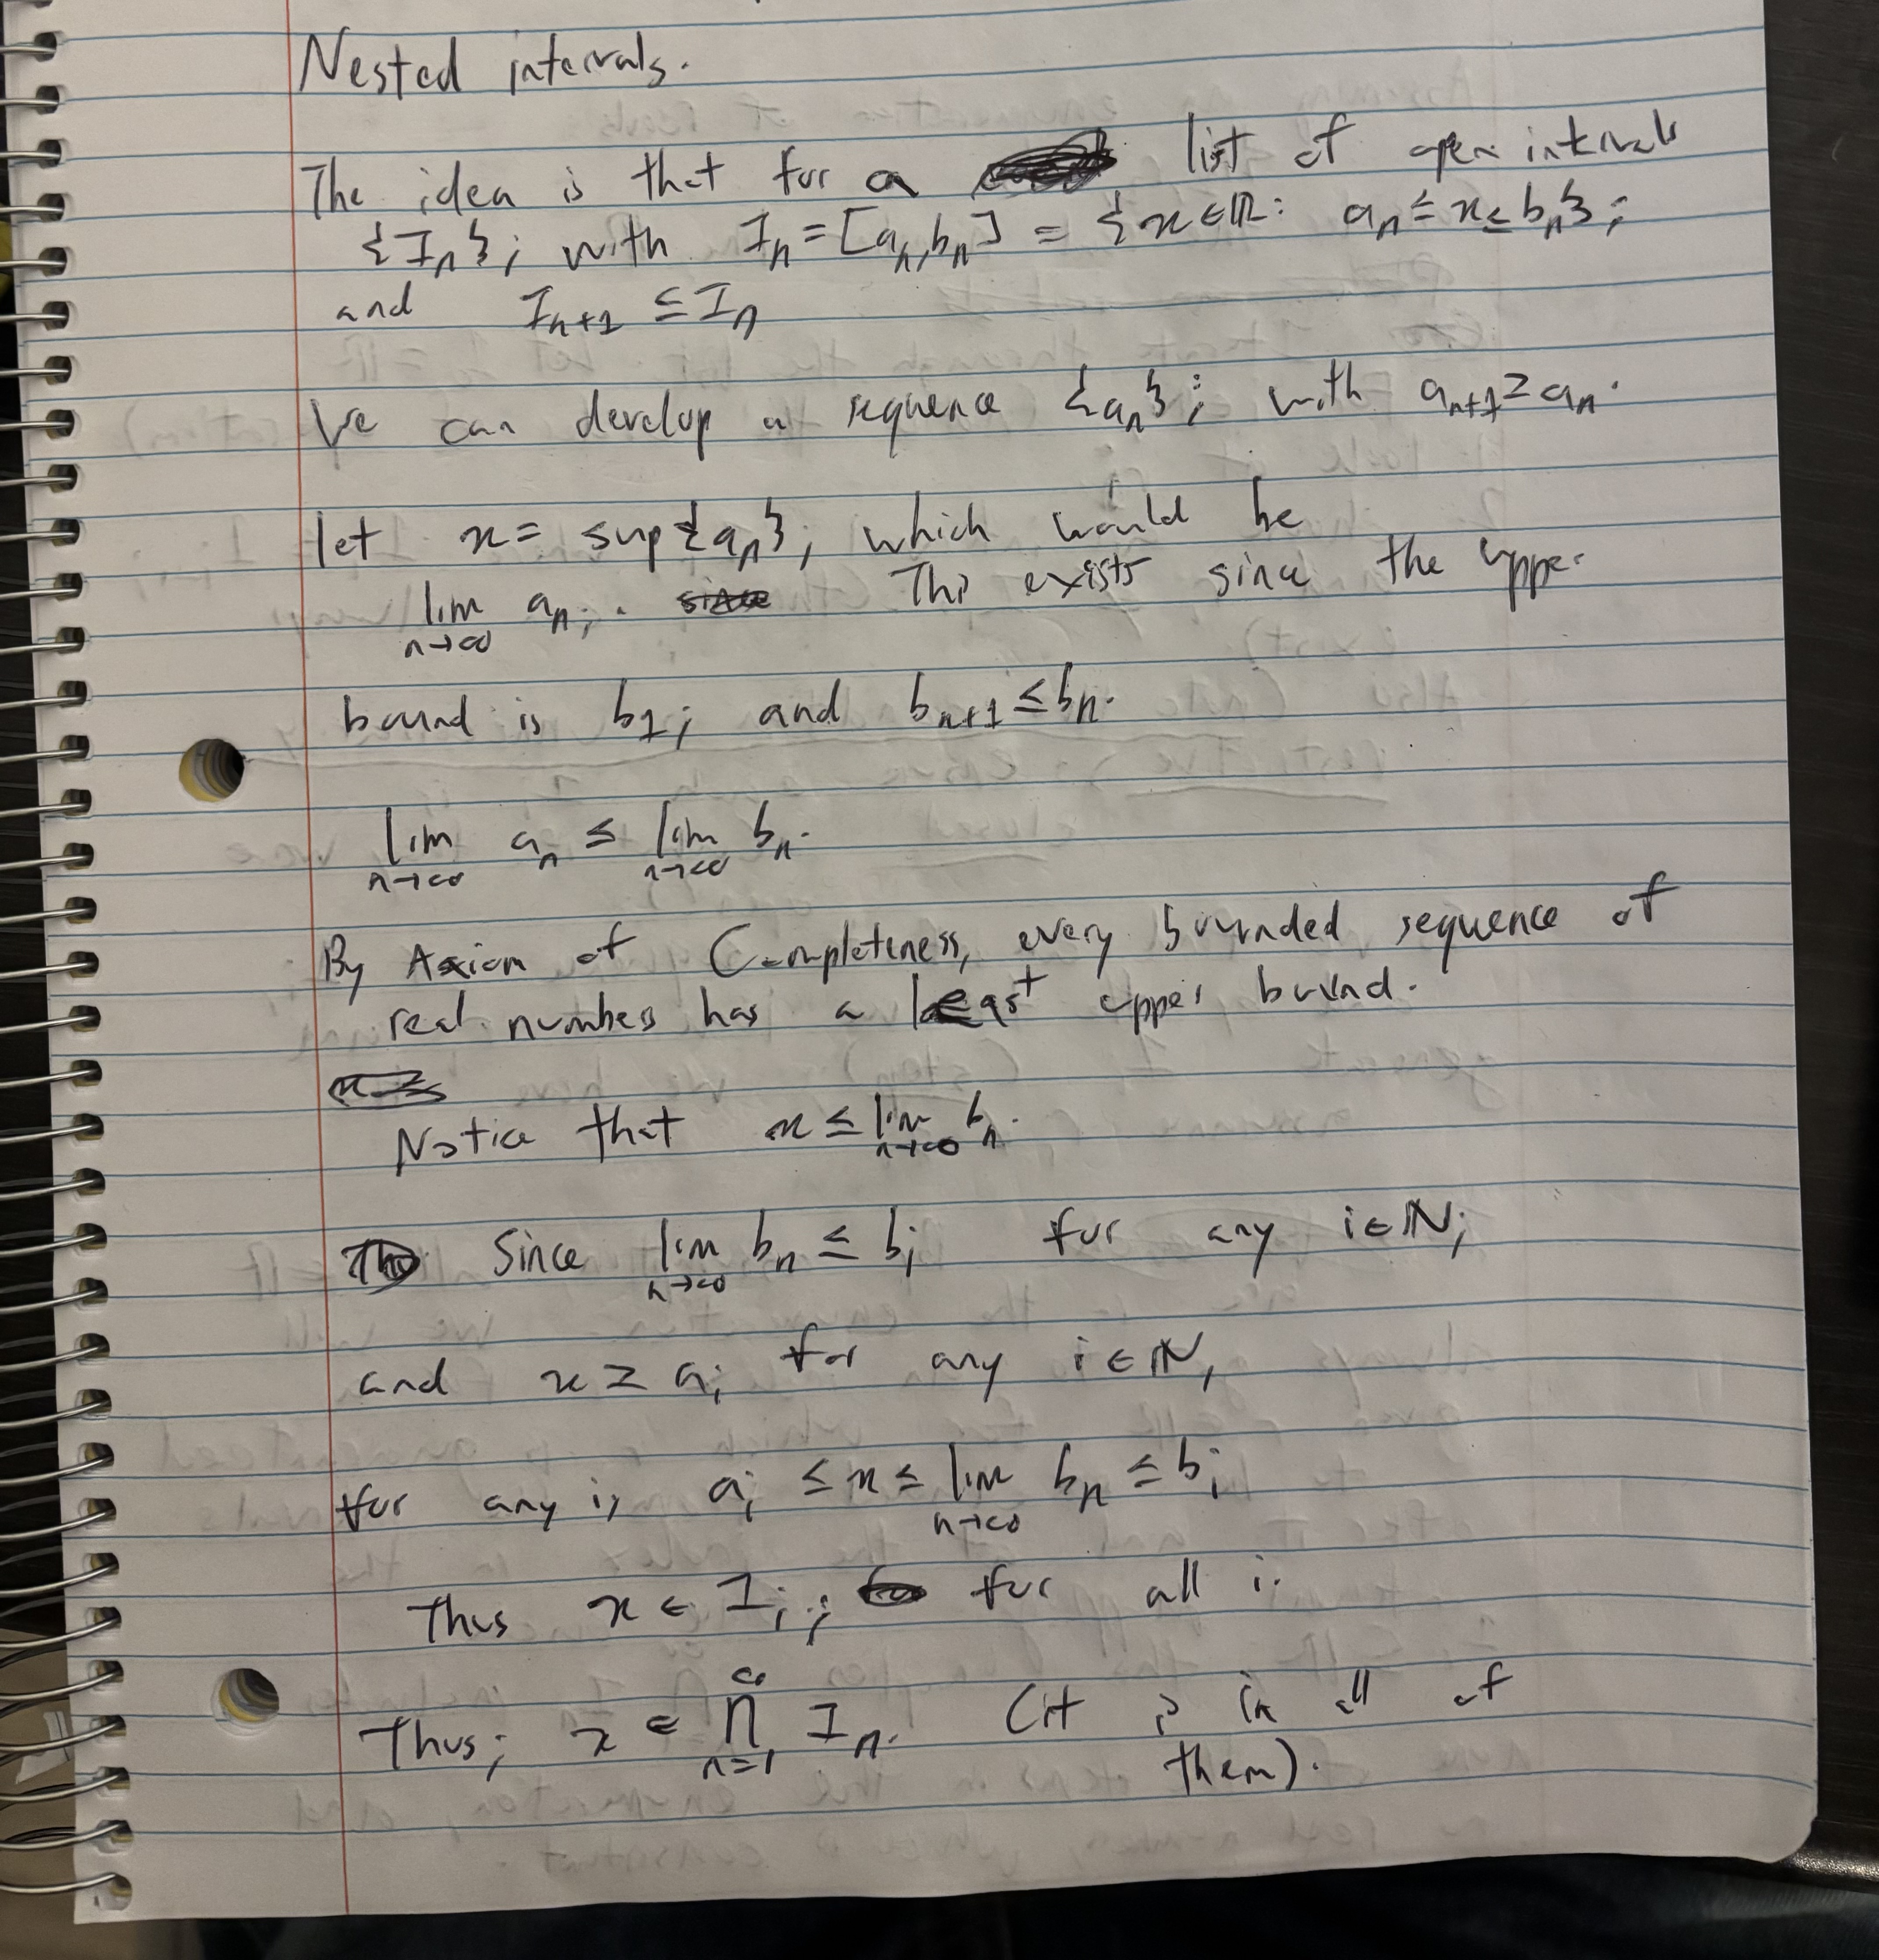 Nested intervals.
The idea is that for a list of open intervals
{Iₙ}; with Iₙ = [aₙ, bₙ] = {x ∈ ℝ: aₙ ≤ x ≤ bₙ};
and Iₙ₊₁ ⊆ Iₙ
We can develop a sequence {aₙ}; with aₙ₊₁ ≥ aₙ.
let x = sup{aₙ}; which would be
lim n→∞ aₙ; . This exists since the upper
bound is b₁; and bₙ₊₁ ≤ bₙ.
lim n→∞ aₙ ≤ lim n→∞ bₙ.
By Axiom of Completeness, every bounded sequence of
real numbers has a least upper bound.
Notice that x ≤ lim n→∞ bₙ.
Since lim n→∞ bₙ ≤ bᵢ for any i ∈ ℕ;
and x ≥ aᵢ for any i ∈ ℕ,
for any i, aᵢ ≤ x ≤ lim n→∞ bₙ ≤ bᵢ
Thus x ∈ Iᵢ; for all i.
Thus; x ∈ ∞ ⋂ n=1 Iₙ. (it is in all of
them).